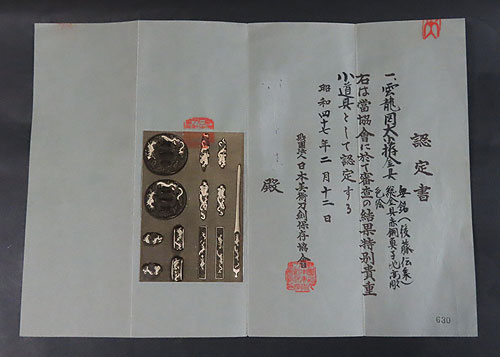 認定書
一、雲龍図大小拵金具
無銘(後藤伝来)
総金具赤銅魚子地高彫
色絵
右は當協會に於て審査の結果特別貴重
小道具として認定する
昭和四十七年二月十二日
財團法人日本美術刀剣保存協會
殿
630